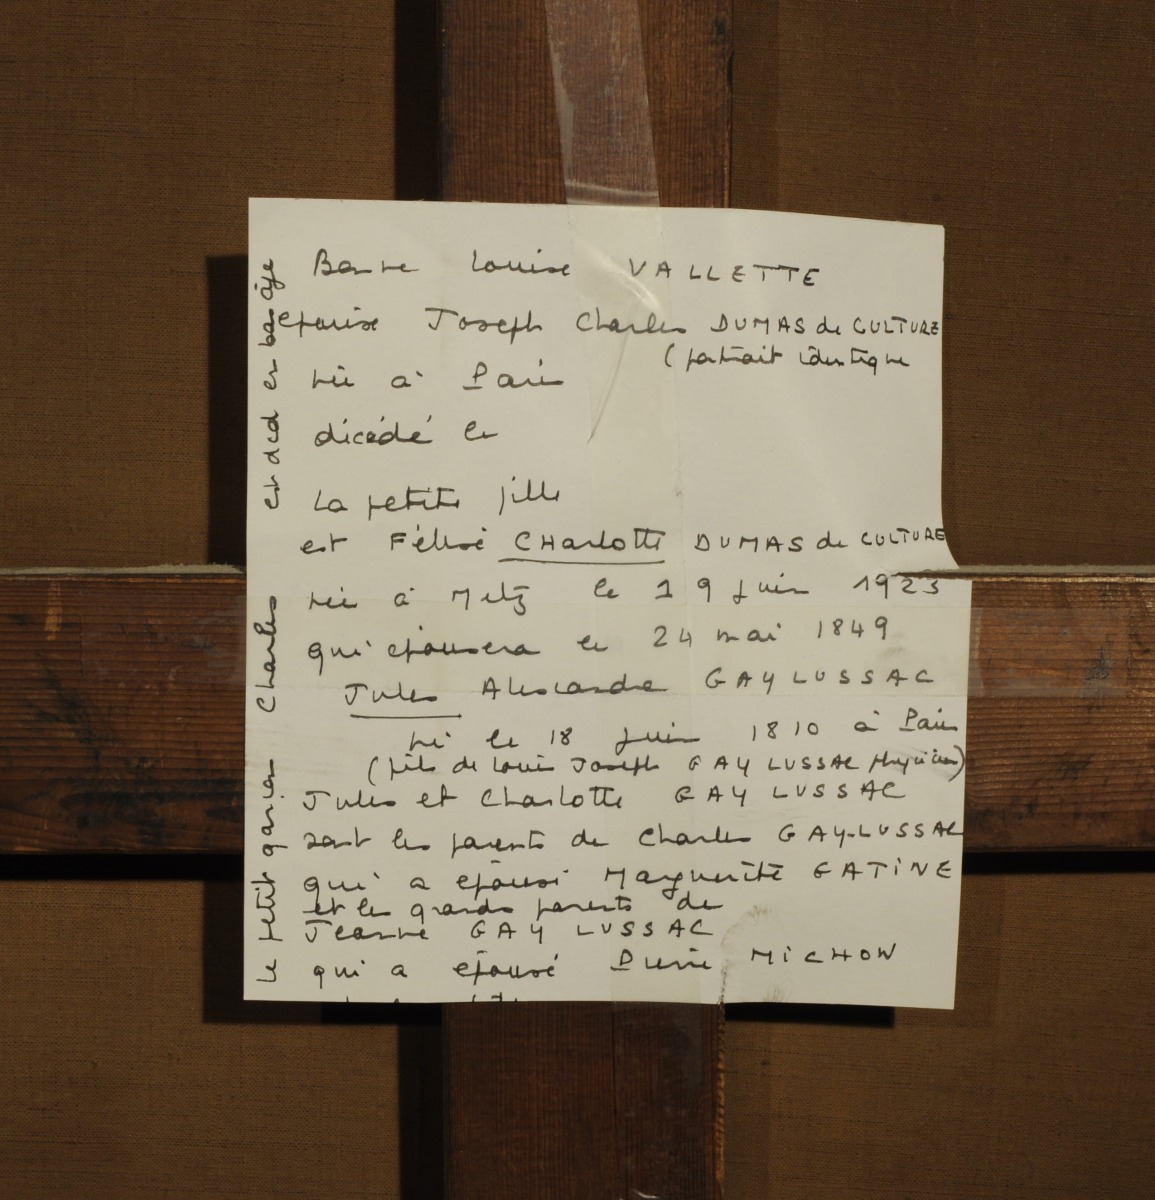 Bonne Louise VALLETTE
épouse Joseph Charles DUMAS de CULTURE
(portrait identique
née à Paris
décédé le
La petite fille
est Félisé CHarlotte DUMAS de CULTURE
née à Metz le 19 juin 1923
qui épousera le 24 mai 1849
Jules Alexandre GAY LUSSAC
né le 18 juin 1810 à Paris
(fils de Louis Joseph GAY LUSSAC physicien)
Jules et Charlotte GAY LUSSAC
sont les parents de Charles GAY-LUSSAC
qui a épousé Marguerite GATINE
et les grands parents de
Jeanne GAY LUSSAC
qui a épousé Pierre MICHON
le petit garçon Charles est dcd en bas âge